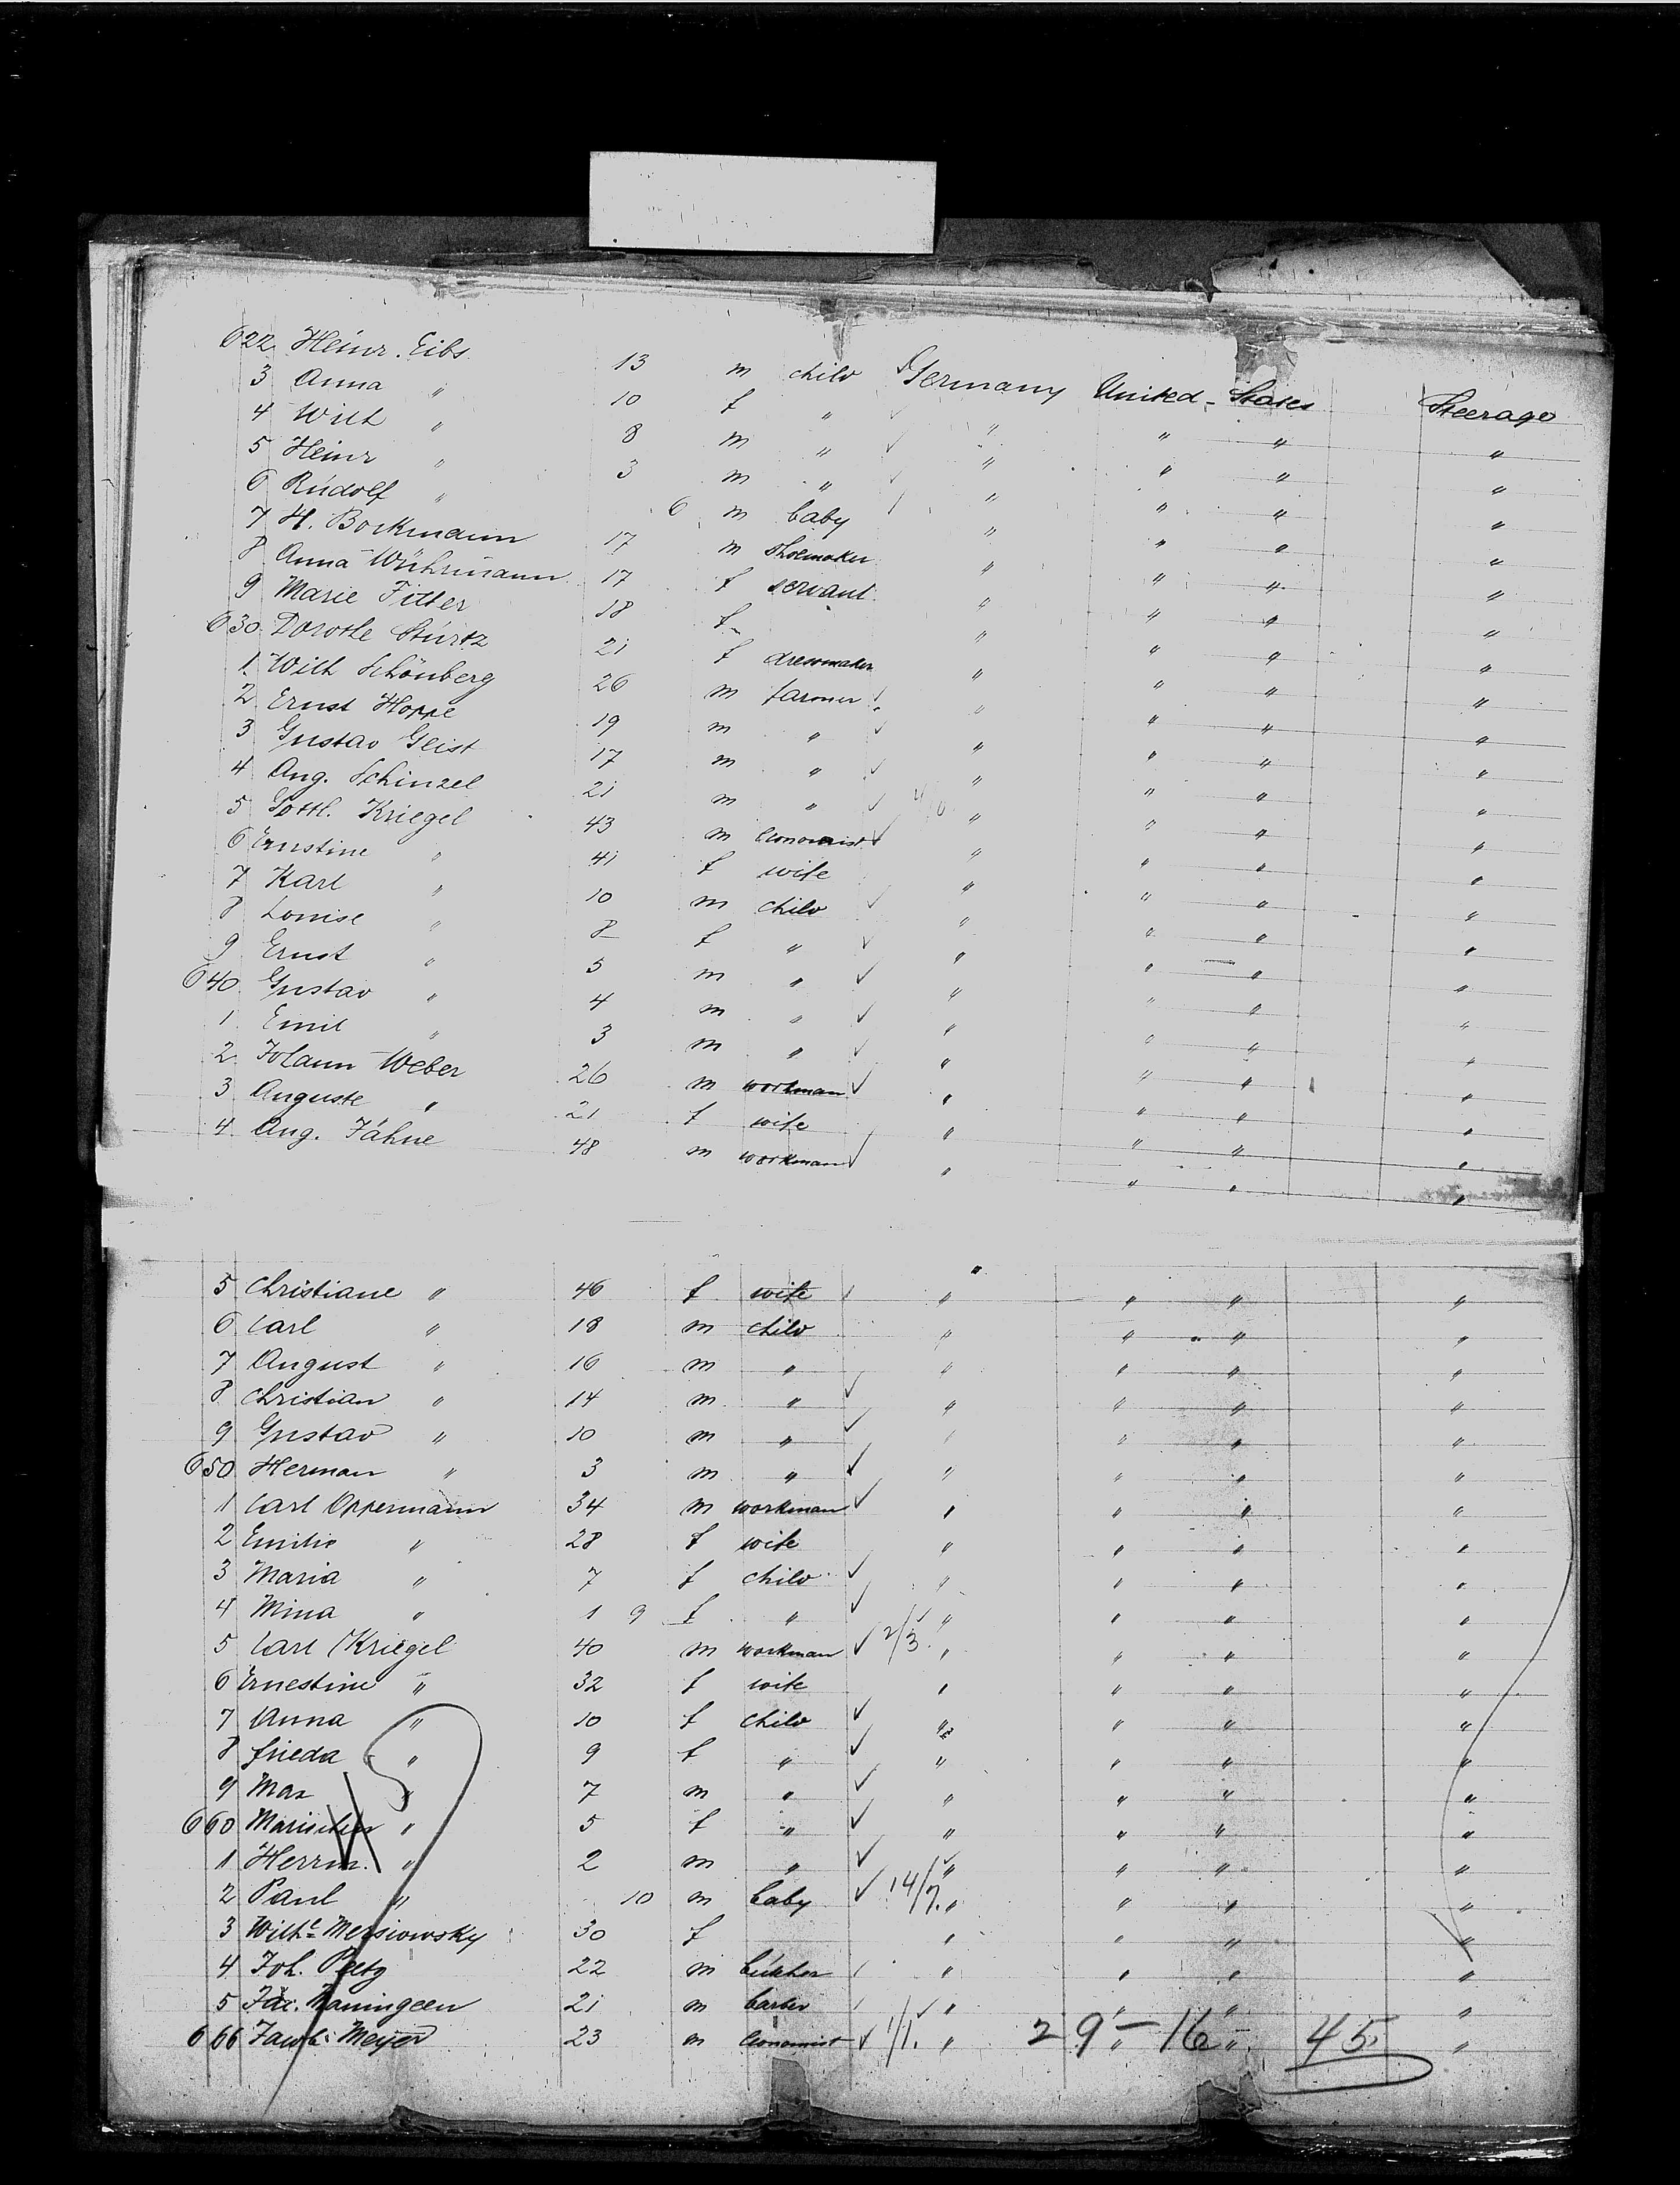 622 Heinr. Eibs 13 m child Germany United-States Steerage
3 Anna " 10 f " " " " "
4 Wilh " 8 m " " " " "
5 Heinr " 3 m " " " " "
6 Rudolf " 6 m baby " " " "
7 H. Borkmann 17 m shoemaker " " " "
8 Anna Wührmann 17 f servant " " " "
9 Marie Fitter 18 f " " " "
630 Dorothe Sturtz 21 f dressmaker " " " "
1 Wilh Schönberg 26 m farmer " " " "
2 Ernst Hoppe 19 m " " " " "
3 Gustav Geist 17 m " " " " "
4 Aug. Schinzel 21 m " " " " "
5 Gottl. Kriegel 43 m economist " " " "
6 Ernstine " 41 f wife " " " "
7 Karl " 10 m child " " " "
8 Louise " 8 f " " " " "
9 Ernst " 5 m " " " " "
640 Gustav " 4 m " " " " "
1 Emil " 3 m " " " " "
2 Johann Weber 26 m workman " " " "
3 Auguste " 21 f wife " " " "
4 Aug. Jähne 48 m workman " " " "
5 Christiane " 46 f wife " " " "
6 Carl " 18 m child " " " "
7 August " 16 m " " " " "
8 Christian " 14 m " " " " "
9 Gustav " 10 m " " " " "
650 Herman " 3 m " " " " "
1 Carl Oppermann 34 m workman " " " "
2 Emilie " 28 f wife " " " "
3 Maria " 7 f child " " " "
4 Mina " 1 9 f " " " " "
5 Carl Kriegel 40 m workman 2/3. " " " "
6 Ernestine " 32 f wife " " " "
7 Anna " 10 f child " " " "
8 Frieda " 9 f " " " " "
9 Max " 7 m " " " " "
660 " 5 f " " " " "
1 Herrm. " 2 m " " " " "
2 Paul " 10 m baby 14/7. " " " "
3 Wilhe Mersiowsky 30 f " " " "
4 Joh. 22 m " " " "
5 21 m barber " " " "
666 Jacob Meyer 23 m economist 1/1. " 29-16 " " 45. "